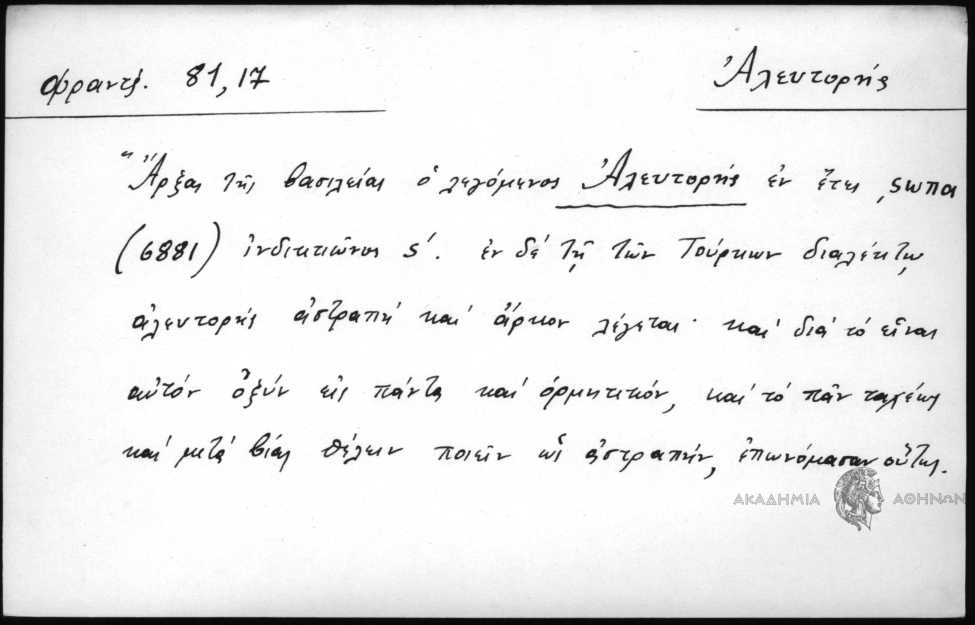 Φραντζ. 81,17
Ἀλευτορής
"Ἄρξας τῆς βασιλείας ὁ λεγόμενος Ἀλευτορής ἐν ἔτει ͵ϛωπα
(6881) ἰνδικτιῶνος ϛ΄. ἐν δέ τῇ τῶν Τούρκων διαλέκτῳ
ἀλευτορής ἀστραπή καί ἄρκον λέγεται· καί διά τό εἶναι
αὐτόν ὀξύν εἰς πάντα καί ὁρμητικόν, καί τό πᾶν ταχέως
καί μετά βίας θέλειν ποιεῖν ὡς ἀστραπήν, ἐπωνόμασαν οὕτως.
ΑΚΑΔΗΜΙΑ ΑΘΗΝΩΝ